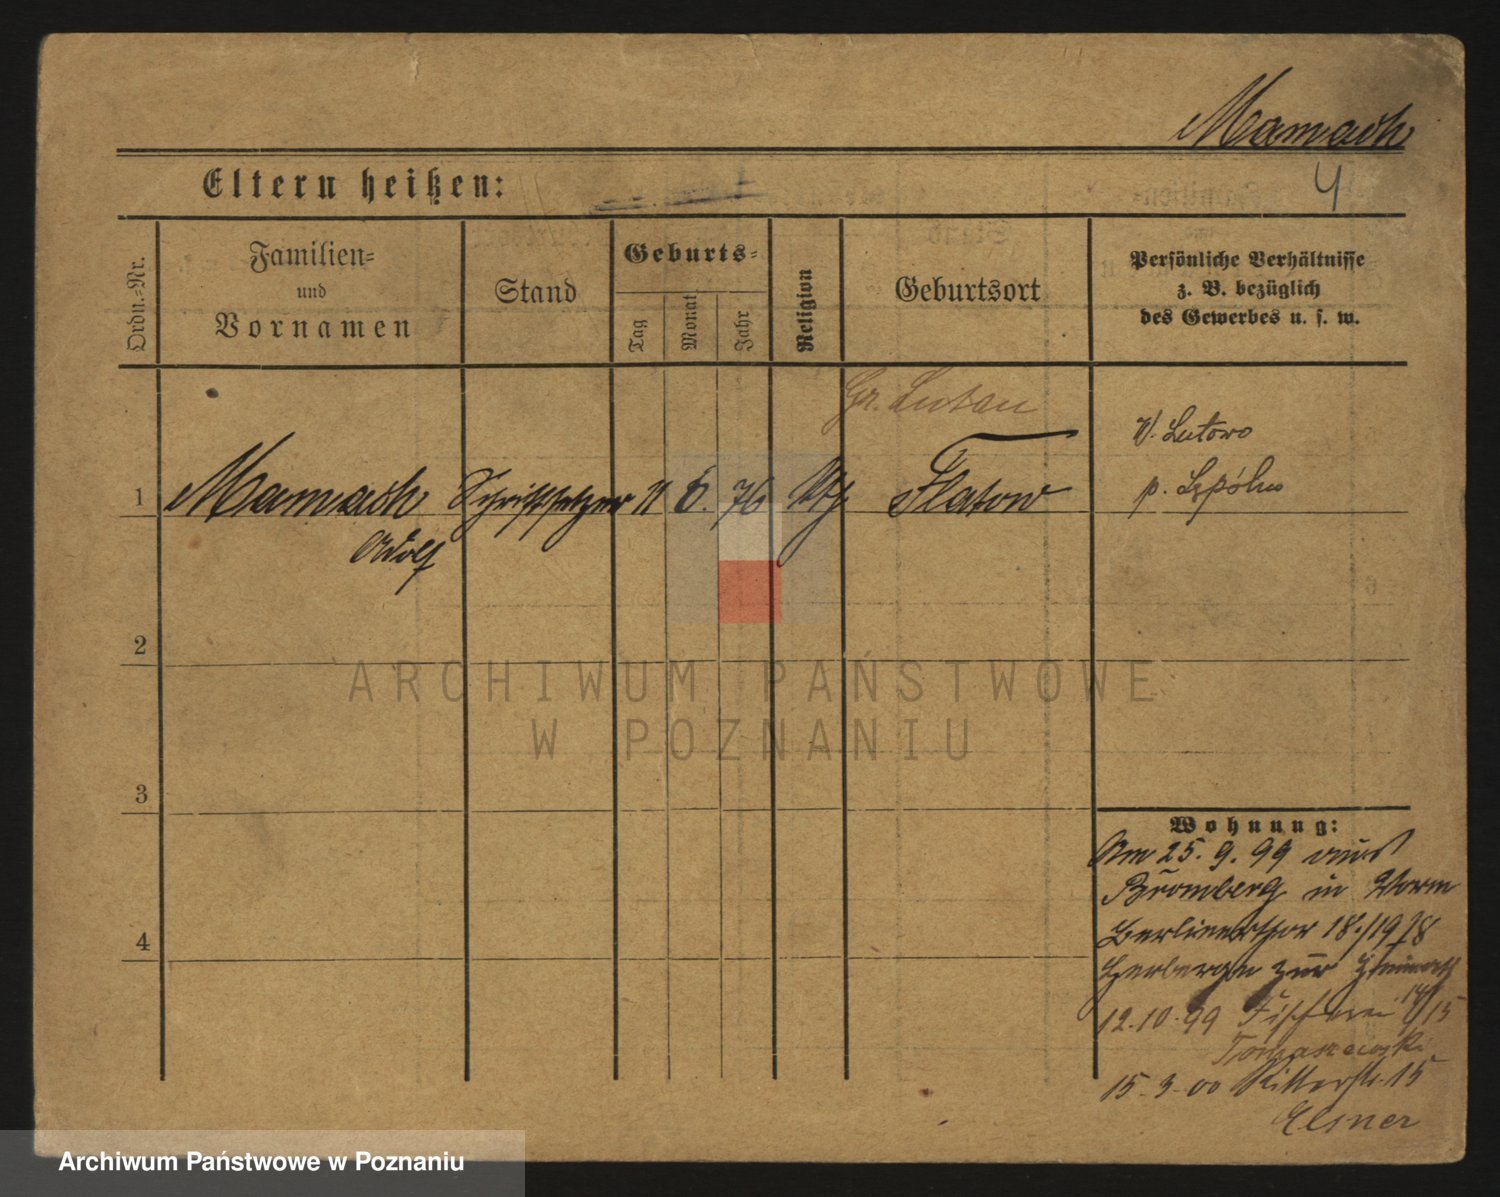 Mamach
4
Eltern heißen:
Ordn.-Nr.
Familien-
und
Vornamen
Stand
Geburts-
Tag
Monat
Jahr
Religion
Geburtsort
Persönliche Verhältnisse
z. B. bezüglich
des Gewerbes u. s. w.
Gr. Lutau
W. Lutowo
1 Schriftsetzer 11 6. 76 Kth Flatow
p.
Adolf
2
3
4
ARCHIWUM PAŃSTWOWE
W POZNANIU
Wohnung:
Am 25. 9. 99 aus
Bromberg in
Berlinerthor 18/19
Herberge zur Heimath
12.10.99 Fischerei 14/15
Tomaszewski
15.3.00 Ritterstr. 15
Elsner
Archiwum Państwowe w Poznaniu